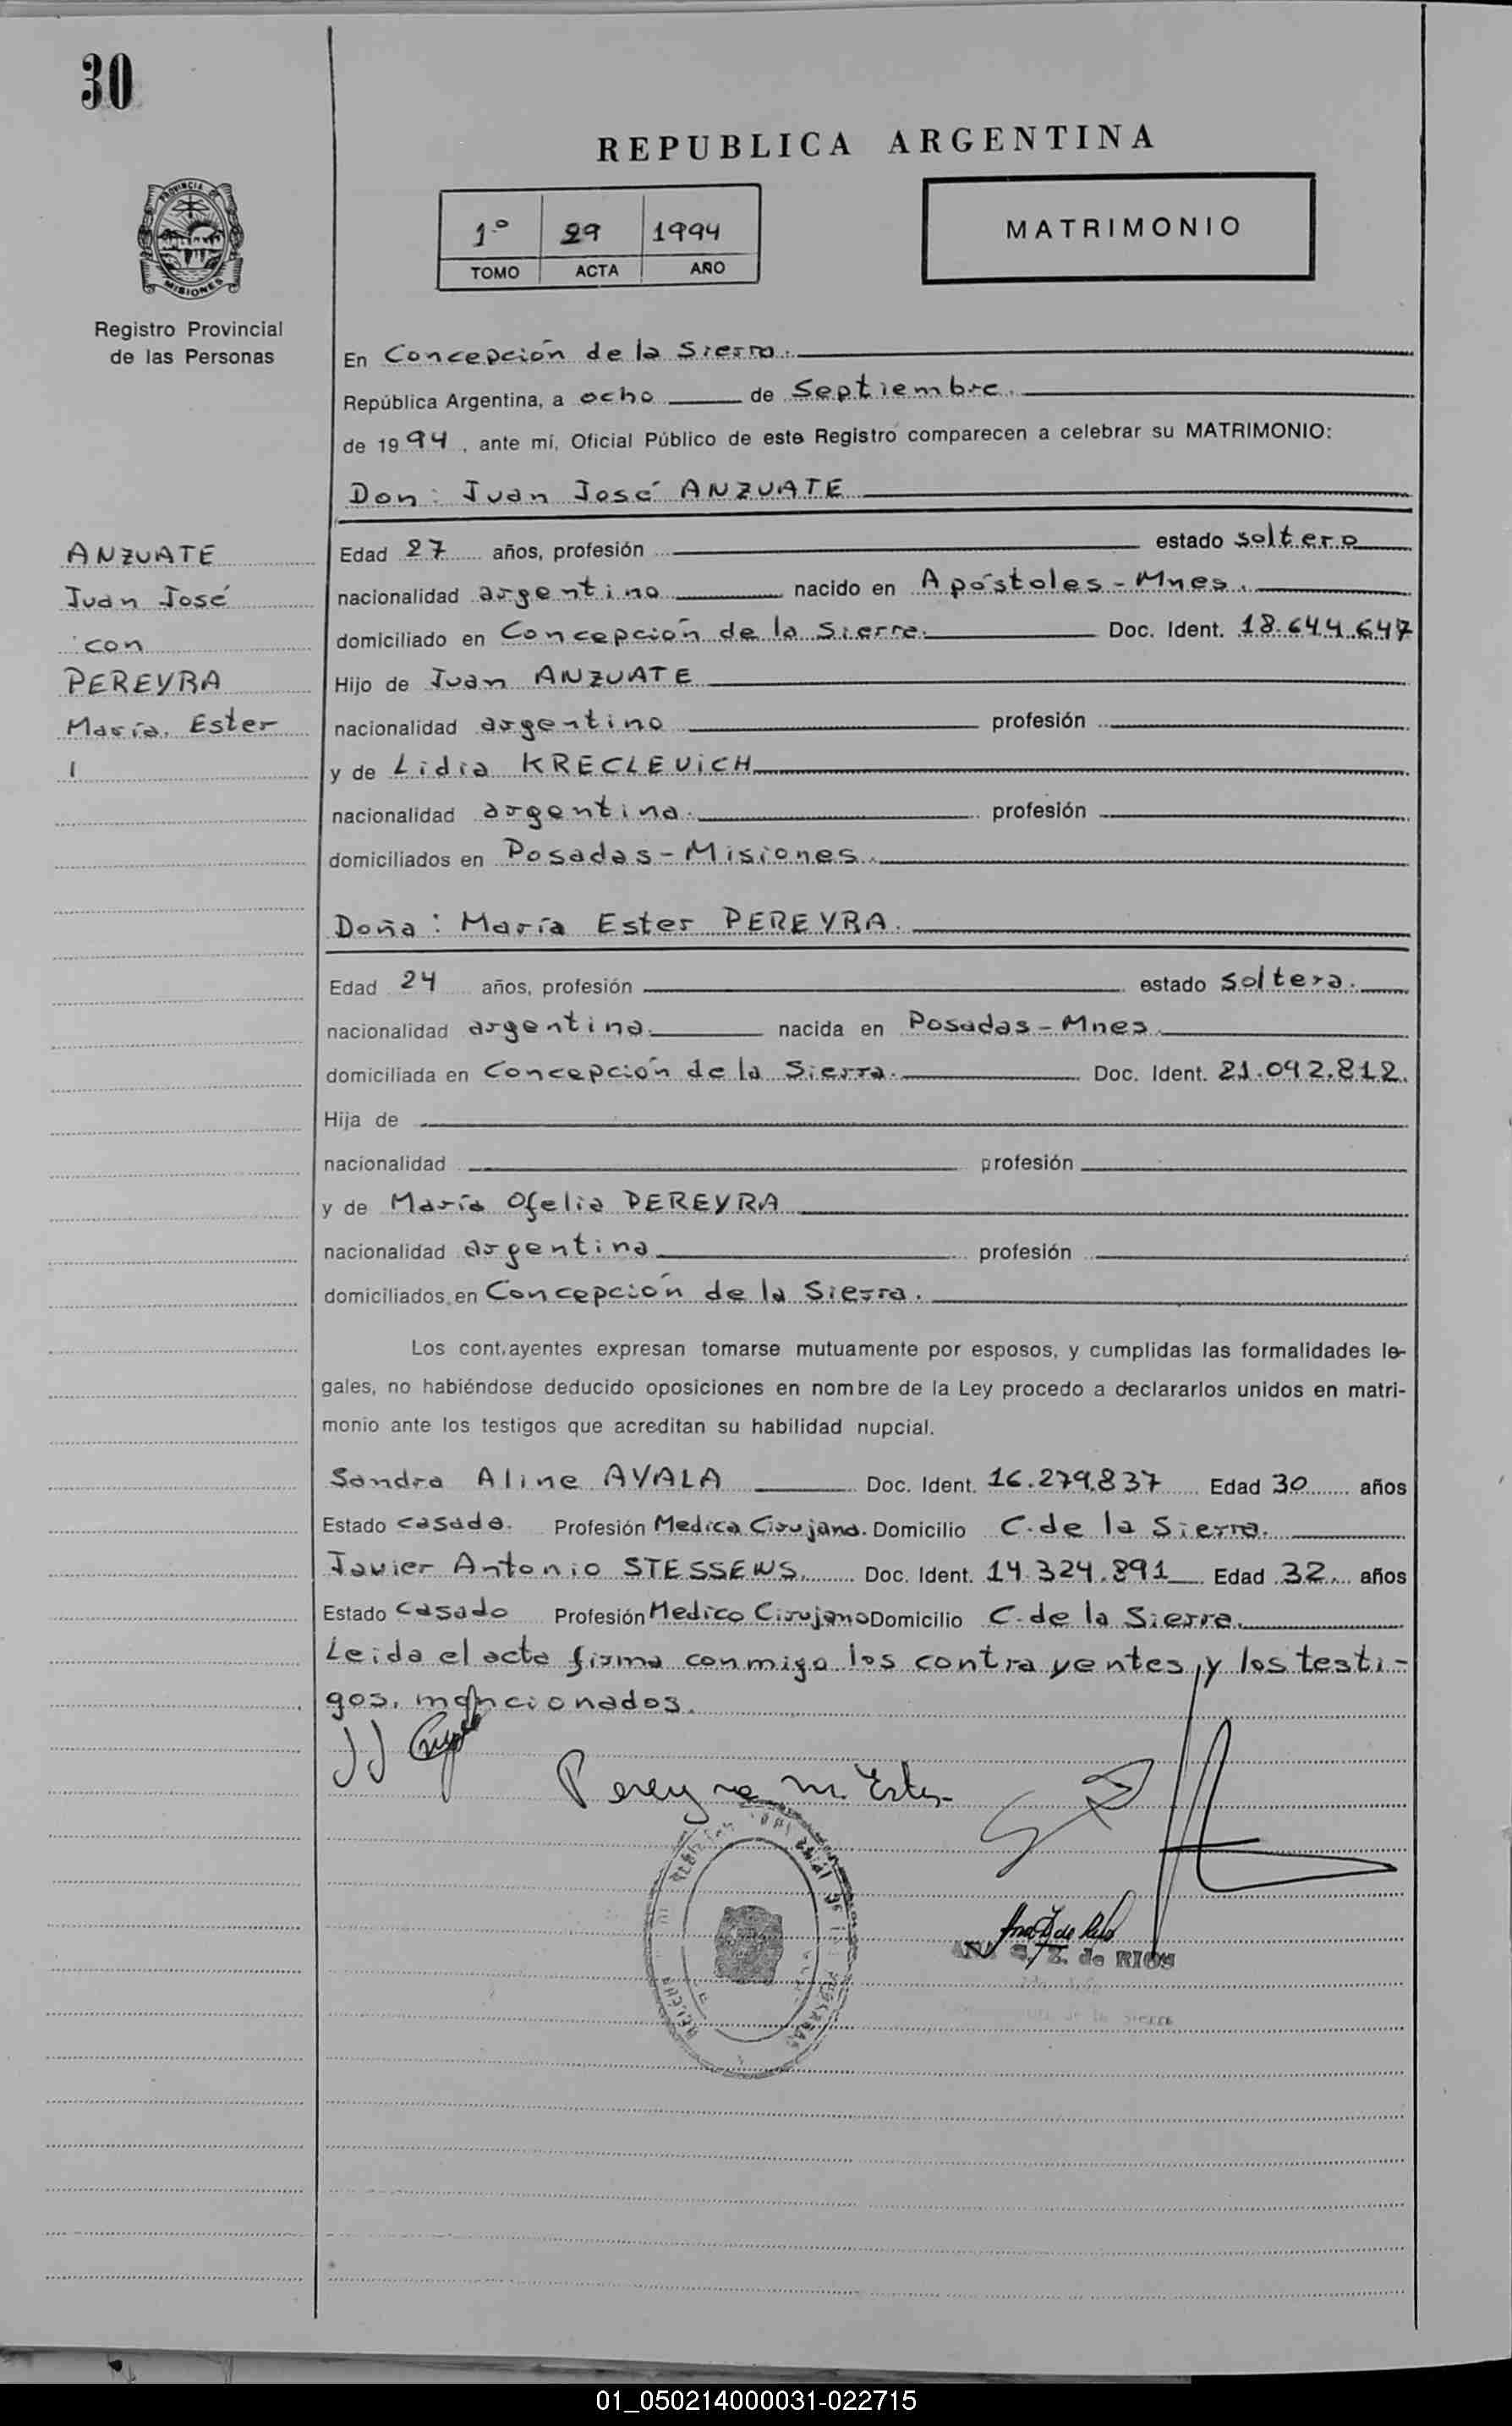 30
REPUBLICA ARGENTINA
1º 29 1994
TOMO ACTA AÑO
MATRIMONIO
PROVINCIA DE
MISIONES
Registro Provincial
de las Personas
En Concepción de la Sierra.
República Argentina, a ocho de Septiembre.
de 1994, ante mí, Oficial Público de este Registro comparecen a celebrar su MATRIMONIO:
Don: Juan José ANZUATE
ANZUATE
Juan José
con
PEREYRA
María. Ester
Edad 27 años, profesión estado soltero
nacionalidad argentino nacido en Apóstoles-Mnes.
domiciliado en Concepción de la Sierra. Doc. Ident. 18.644.647
Hijo de Juan ANZUATE
nacionalidad argentino profesión
y de Lidia KRECLEVICH
nacionalidad argentina. profesión
domiciliados en Posadas-Misiones.
Doña: María Ester PEREYRA.
Edad 24 años, profesión estado Soltera.
nacionalidad argentina. nacida en Posadas-Mnes.
domiciliada en Concepción de la Sierra. Doc. Ident. 21.092.812.
Hija de
nacionalidad profesión
y de María Ofelia PEREYRA
nacionalidad argentina profesión
domiciliados en Concepción de la Sierra.
Los cont.ayentes expresan tomarse mutuamente por esposos, y cumplidas las formalidades le-
gales, no habiéndose deducido oposiciones en nombre de la Ley procedo a declararlos unidos en matri-
monio ante los testigos que acreditan su habilidad nupcial.
Sandra Aline AYALA Doc. Ident. 16.279.837 Edad 30 años
Estado casada. Profesión Medica Cirujana. Domicilio C. de la Sierra.
Javier Antonio STESSENS. Doc. Ident. 14.324.891 Edad 32. años
Estado Casado Profesión Medico Cirujano Domicilio C. de la Sierra.
Leida el acta firma conmigo los contrayentes, y los testi-
gos, mencionados.
JJ
Pereyra M. Ester
de RIOS
de la Sierra
01_050214000031-022715